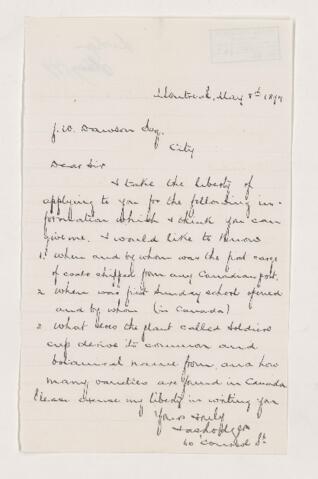 Montreal, May 8th 1899
J. W. Dawson Esq.
City
Dear Sir
I take the liberty of
applying to you for the following in-
formation which I think you can
give me. I would like to know
1. when and by whom was the first cargo
of coals shipped from any Canadian port.
2 When was first Sunday school opened
and by whom (in Canada)
3 What does the plant called Soldiers
cup derive its common and
botanical name from, and how
many varieties are found in Canada
Please excuse my liberty in writing you
Yours truly
St